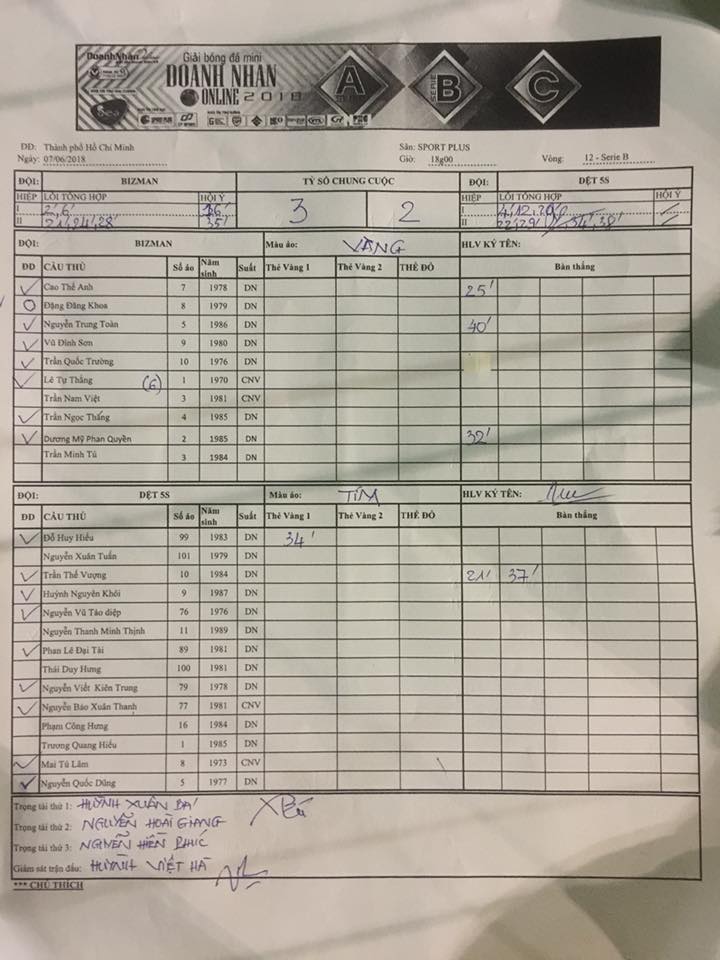 DoanhNhân
Giải bóng đá mini
DOANH NHAN
ONLINE 2018
A
SERIE
B
C
Sea
ĐĐ: Thành phố Hồ Chí Minh Sân: SPORT PLUS
Ngày: 07/06/2018 Giờ: 18g00 Vòng: 12 - Serie B
ĐỘI: BIZMAN TỶ SỐ CHUNG CUỘC ĐỘI: DỆT 5S
HIỆP LỖI TỔNG HỢP HỘI Ý 3 2 HIỆP LỖI TỔNG HỢP HỘI Ý
I 2', 6' 16' I 4', 12',
II 21', 24', 28' 35' II 22', 29' 34', 38'
ĐỘI: BIZMAN Màu áo: VÀNG HLV KÝ TÊN:
ĐD CẦU THỦ Số áo Năm sinh Suất Thẻ Vàng 1 Thẻ Vàng 2 THẺ ĐỎ Bàn thắng
Cao Thế Anh 7 1978 DN 25'
Đặng Đăng Khoa 8 1979 DN
Nguyễn Trung Toàn 5 1986 DN 40'
Vũ Đình Sơn 9 1980 DN
Trần Quốc Trường 10 1976 DN
Lê Tự Thắng (6) 1 1970 CNV
Trần Nam Việt 3 1981 CNV
Trần Ngọc Thắng 4 1985 DN
Dương Mỹ Phan Quyền 2 1985 DN 32'
Trần Minh Tú 3 1984 DN
ĐỘI: DỆT 5S Màu áo: TÍM HLV KÝ TÊN:
ĐD CẦU THỦ Số áo Năm sinh Suất Thẻ Vàng 1 Thẻ Vàng 2 THẺ ĐỎ Bàn thắng
Đỗ Huy Hiếu 99 1983 DN 34'
Nguyễn Xuân Tuấn 101 1979 DN
Trần Thế Vượng 10 1984 DN 21' 37'
Huỳnh Nguyên Khôi 9 1987 DN
Nguyễn Vũ Tảo điệp 76 1976 DN
Nguyễn Thanh Minh Thịnh 11 1989 DN
Phan Lê Đại Tài 89 1981 DN
Thái Duy Hưng 100 1981 DN
Nguyễn Viết Kiên Trung 79 1978 DN
Nguyễn Bảo Xuân Thanh 77 1981 CNV
Phạm Công Hưng 16 1984 DN
Trương Quang Hiếu 1 1985 DN
Mai Tú Lâm 8 1973 CNV
Nguyễn Quốc Dũng 5 1977 DN
Trọng tài thứ 1: HUỲNH XUÂN BÁ
Trọng tài thứ 2: NGUYỄN HOÀI GIANG
Trọng tài thứ 3: NGUYỄN HIỀN PHÚC
Giám sát trận đấu: HUỲNH VIỆT HÀ
*** CHÚ THÍCH